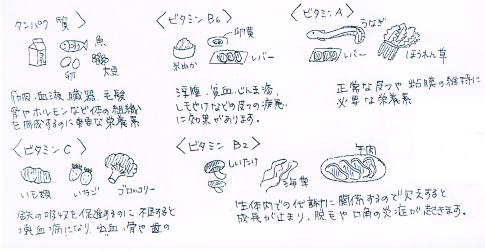 タンパク質
魚
卵
大豆
筋肉、血液、臓器、毛髪
骨やホルモンなど体の組織
を構成するのに重要な栄養素
〈ビタミンB6〉
卵黄
米ぬか
レバー
浮腫、貧血、じんま湿、
しもやけなどの皮フの病気
に効果があります。
〈ビタミンA〉
うなぎ
レバー
ほうれん草
正常な皮フや粘膜の維持に
必要な栄養素
〈ビタミンC〉
いも類
いちご
ブロッコリー
鉄の吸収を促進するのに 不足すると
壊血病になり、出血、骨や歯の
〈ビタミンB2〉
しいたけ
海草
牛肉
生体内での代謝に関係するので欠乏すると
成長が止まり、脱毛や口角の炎症が起きます。